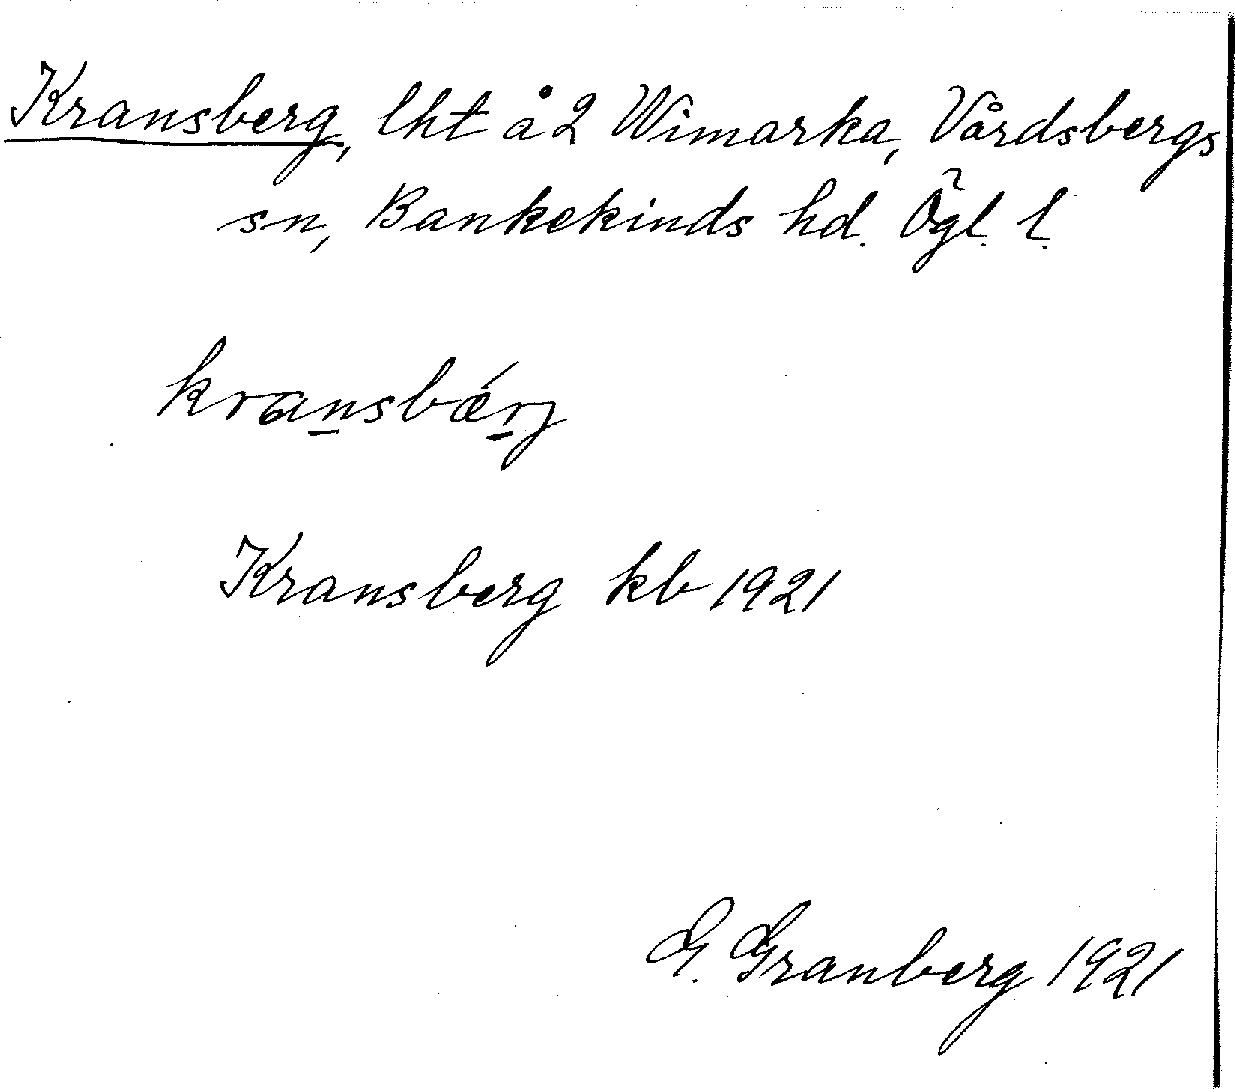 Kransberg, lht å 2 Wimarka, Vårdsbergs
sn, Bankekinds hd. Ögl. l.
kransbǽrj
Kransberg kb 1921
G. Granberg 1921